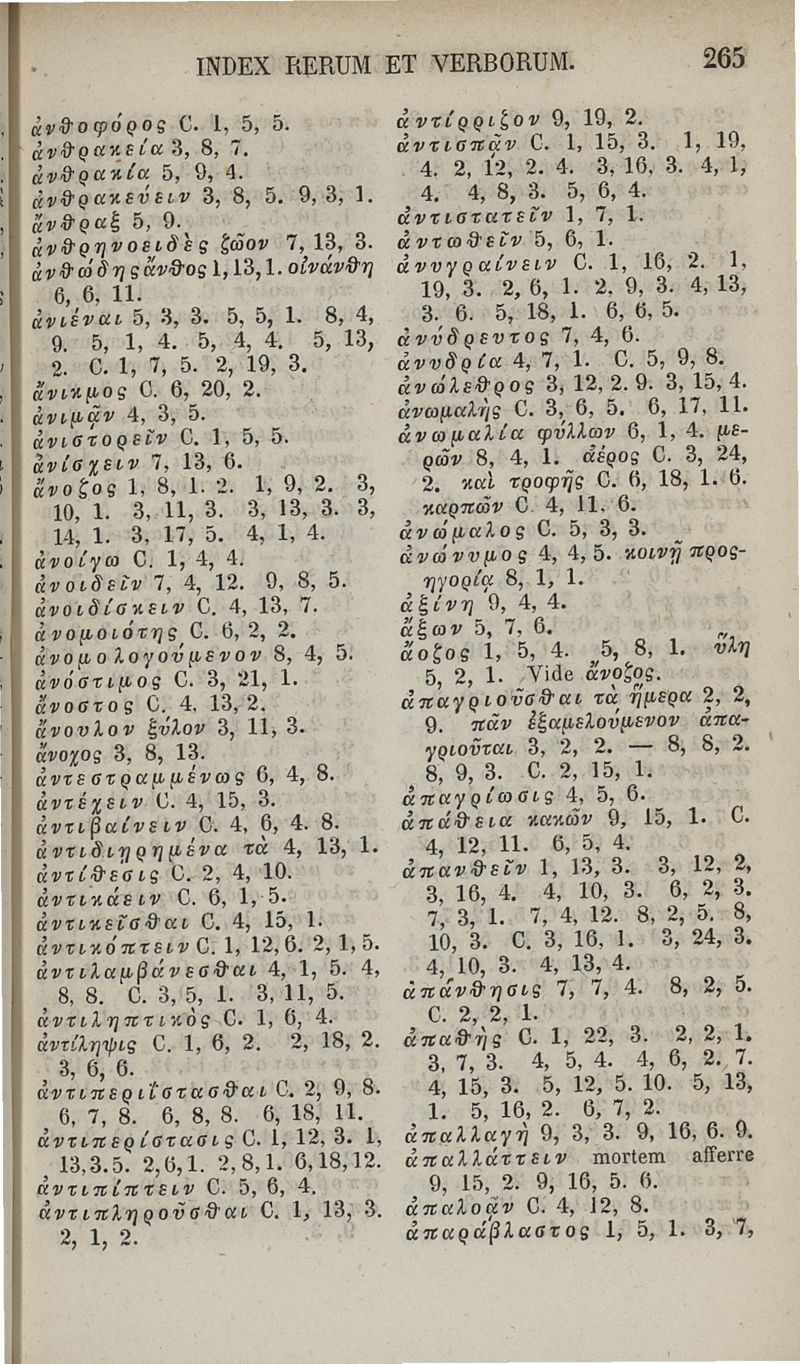 INDEX RERUM ET VERBORUM. 265
ἀνθοφόρος C. 1, 5, 5.
ἀνθρακεία 3, 8, 7.
ἀνθρακία 5, 9, 4.
ἀνθρακεύειν 3, 8, 5. 9, 3, 1.
ἄνθραξ 5, 9.
ἀνθρηνοειδὲς ζῶον 7, 13, 3.
ἀνθώδης ἄνθος 1, 13, 1. οἰνάνθη
6, 6, 11.
ἀνιέναι 5, 3, 3. 5, 5, 1. 8, 4,
9. 5, 1, 4. 5, 4, 4. 5, 13,
2. C. 1, 7, 5. 2, 19, 3.
ἄνικμος C. 6, 20, 2.
ἀνιμᾶν 4, 3, 5.
ἀνιστορεῖν C. 1, 5, 5.
ἀνίσχειν 7, 13, 6.
ἄνοζος 1, 8, 1. 2. 1, 9, 2. 3,
10, 1. 3, 11, 3. 3, 13, 3. 3,
14, 1. 3, 17, 5. 4, 1, 4.
ἀνοίγω C. 1, 4, 4.
ἀνοιδεῖν 7, 4, 12. 9, 8, 5.
ἀνοιδίσκειν C. 4, 13, 7.
ἀνομοιότης C. 6, 2, 2.
ἀνομολογούμενον 8, 4, 5.
ἀνόστιμος C. 3, 21, 1.
ἄνοστος C. 4, 13, 2.
ἄνουλον ξύλον 3, 11, 3.
ἄνοχος 3, 8, 13.
ἀντεστραμμένως 6, 4, 8.
ἀντέχειν C. 4, 15, 3.
ἀντιβαίνειν C. 4, 6, 4. 8.
ἀντιδιῃρημένα τὰ 4, 13, 1.
ἀντίθεσις C. 2, 4, 10.
ἀντικάειν C. 6, 1, 5.
ἀντικεῖσθαι C. 4, 15, 1.
ἀντικόπτειν C. 1, 12, 6. 2, 1, 5.
ἀντιλαμβάνεσθαι 4, 1, 5. 4,
8, 8. C. 3, 5, 1. 3, 11, 5.
ἀντιληπτικὸς C. 1, 6, 4.
ἀντίληψις C. 1, 6, 2. 2, 18, 2.
3, 6, 6.
ἀντιπεριΐστασθαι C. 2, 9, 8.
6, 7, 8. 6, 8, 8. 6, 18, 11.
ἀντιπερίστασις C. 1, 12, 3. 1,
13, 3. 5. 2, 6, 1. 2, 8, 1. 6, 18, 12.
ἀντιπίπτειν C. 5, 6, 4.
ἀντιπληροῦσθαι C. 1, 13, 3.
2, 1, 2.
ἀντίρριζον 9, 19, 2.
ἀντισπᾶν C. 1, 15, 3. 1, 19,
4. 2, 12, 2. 4. 3, 16, 3. 4, 1,
4. 4, 8, 3. 5, 6, 4.
ἀντιστατεῖν 1, 7, 1.
ἀντωθεῖν 5, 6, 1.
ἀνυγραίνειν C. 1, 16, 2. 1,
19, 3. 2, 6, 1. 2. 9, 3. 4, 13,
3. 6. 5, 18, 1. 6, 6, 5.
ἀνύδρευτος 7, 4, 6.
ἀνυδρία 4, 7, 1. C. 5, 9, 8.
ἀνώλεθρος 3, 12, 2. 9. 3, 15, 4.
ἀνωμαλὴς C. 3, 6, 5. 6, 17, 11.
ἀνωμαλία φύλλων 6, 1, 4. με-
ρῶν 8, 4, 1. ἀέρος C. 3, 24,
2. καὶ τροφῆς C. 6, 18, 1. 6.
καρπῶν C. 4, 11, 6.
ἀνώμαλος C. 5, 3, 3.
ἀνώνυμος 4, 4, 5. κοινῇ προς-
ηγορίᾳ 8, 1, 1.
ἀξίνη 9, 4, 4.
ἄξων 5, 7, 6.
ἄοζος 1, 5, 4. 5, 8, 1. ὕλη
5, 2, 1. Vide ἄνοζος.
ἀπαγριοῦσθαι τὰ ἥμερα 2, 2,
9. πᾶν ἐξαμελούμενον ἀπα-
γριοῦται 3, 2, 2. — 8, 8, 2.
8, 9, 3. C. 2, 15, 1.
ἀπαγρίωσις 4, 5, 6.
ἀπάθεια κακῶν 9, 15, 1. C.
4, 12, 11. 6, 5, 4.
ἀπανθεῖν 1, 13, 3. 3, 12, 2,
3, 16, 4. 4, 10, 3. 6, 2, 3.
7, 3, 1. 7, 4, 12. 8, 2, 5. 8,
10, 3. C. 3, 16, 1. 3, 24, 3.
4, 10, 3. 4, 13, 4.
ἀπάνθησις 7, 7, 4. 8, 2, 5.
C. 2, 2, 1.
ἀπαθὴς C. 1, 22, 3. 2, 2, 1.
3, 7, 3. 4, 5, 4. 4, 6, 2. 7.
4, 15, 3. 5, 12, 5. 10. 5, 13,
1. 5, 16, 2. 6, 7, 2.
ἀπαλλαγὴ 9, 3, 3. 9, 16, 6. 9.
ἀπαλλάττειν mortem afferre
9, 15, 2. 9, 16, 5. 6.
ἀπαλοᾶν C. 4, 12, 8.
ἀπαράβλαστος 1, 5, 1. 3, 7,